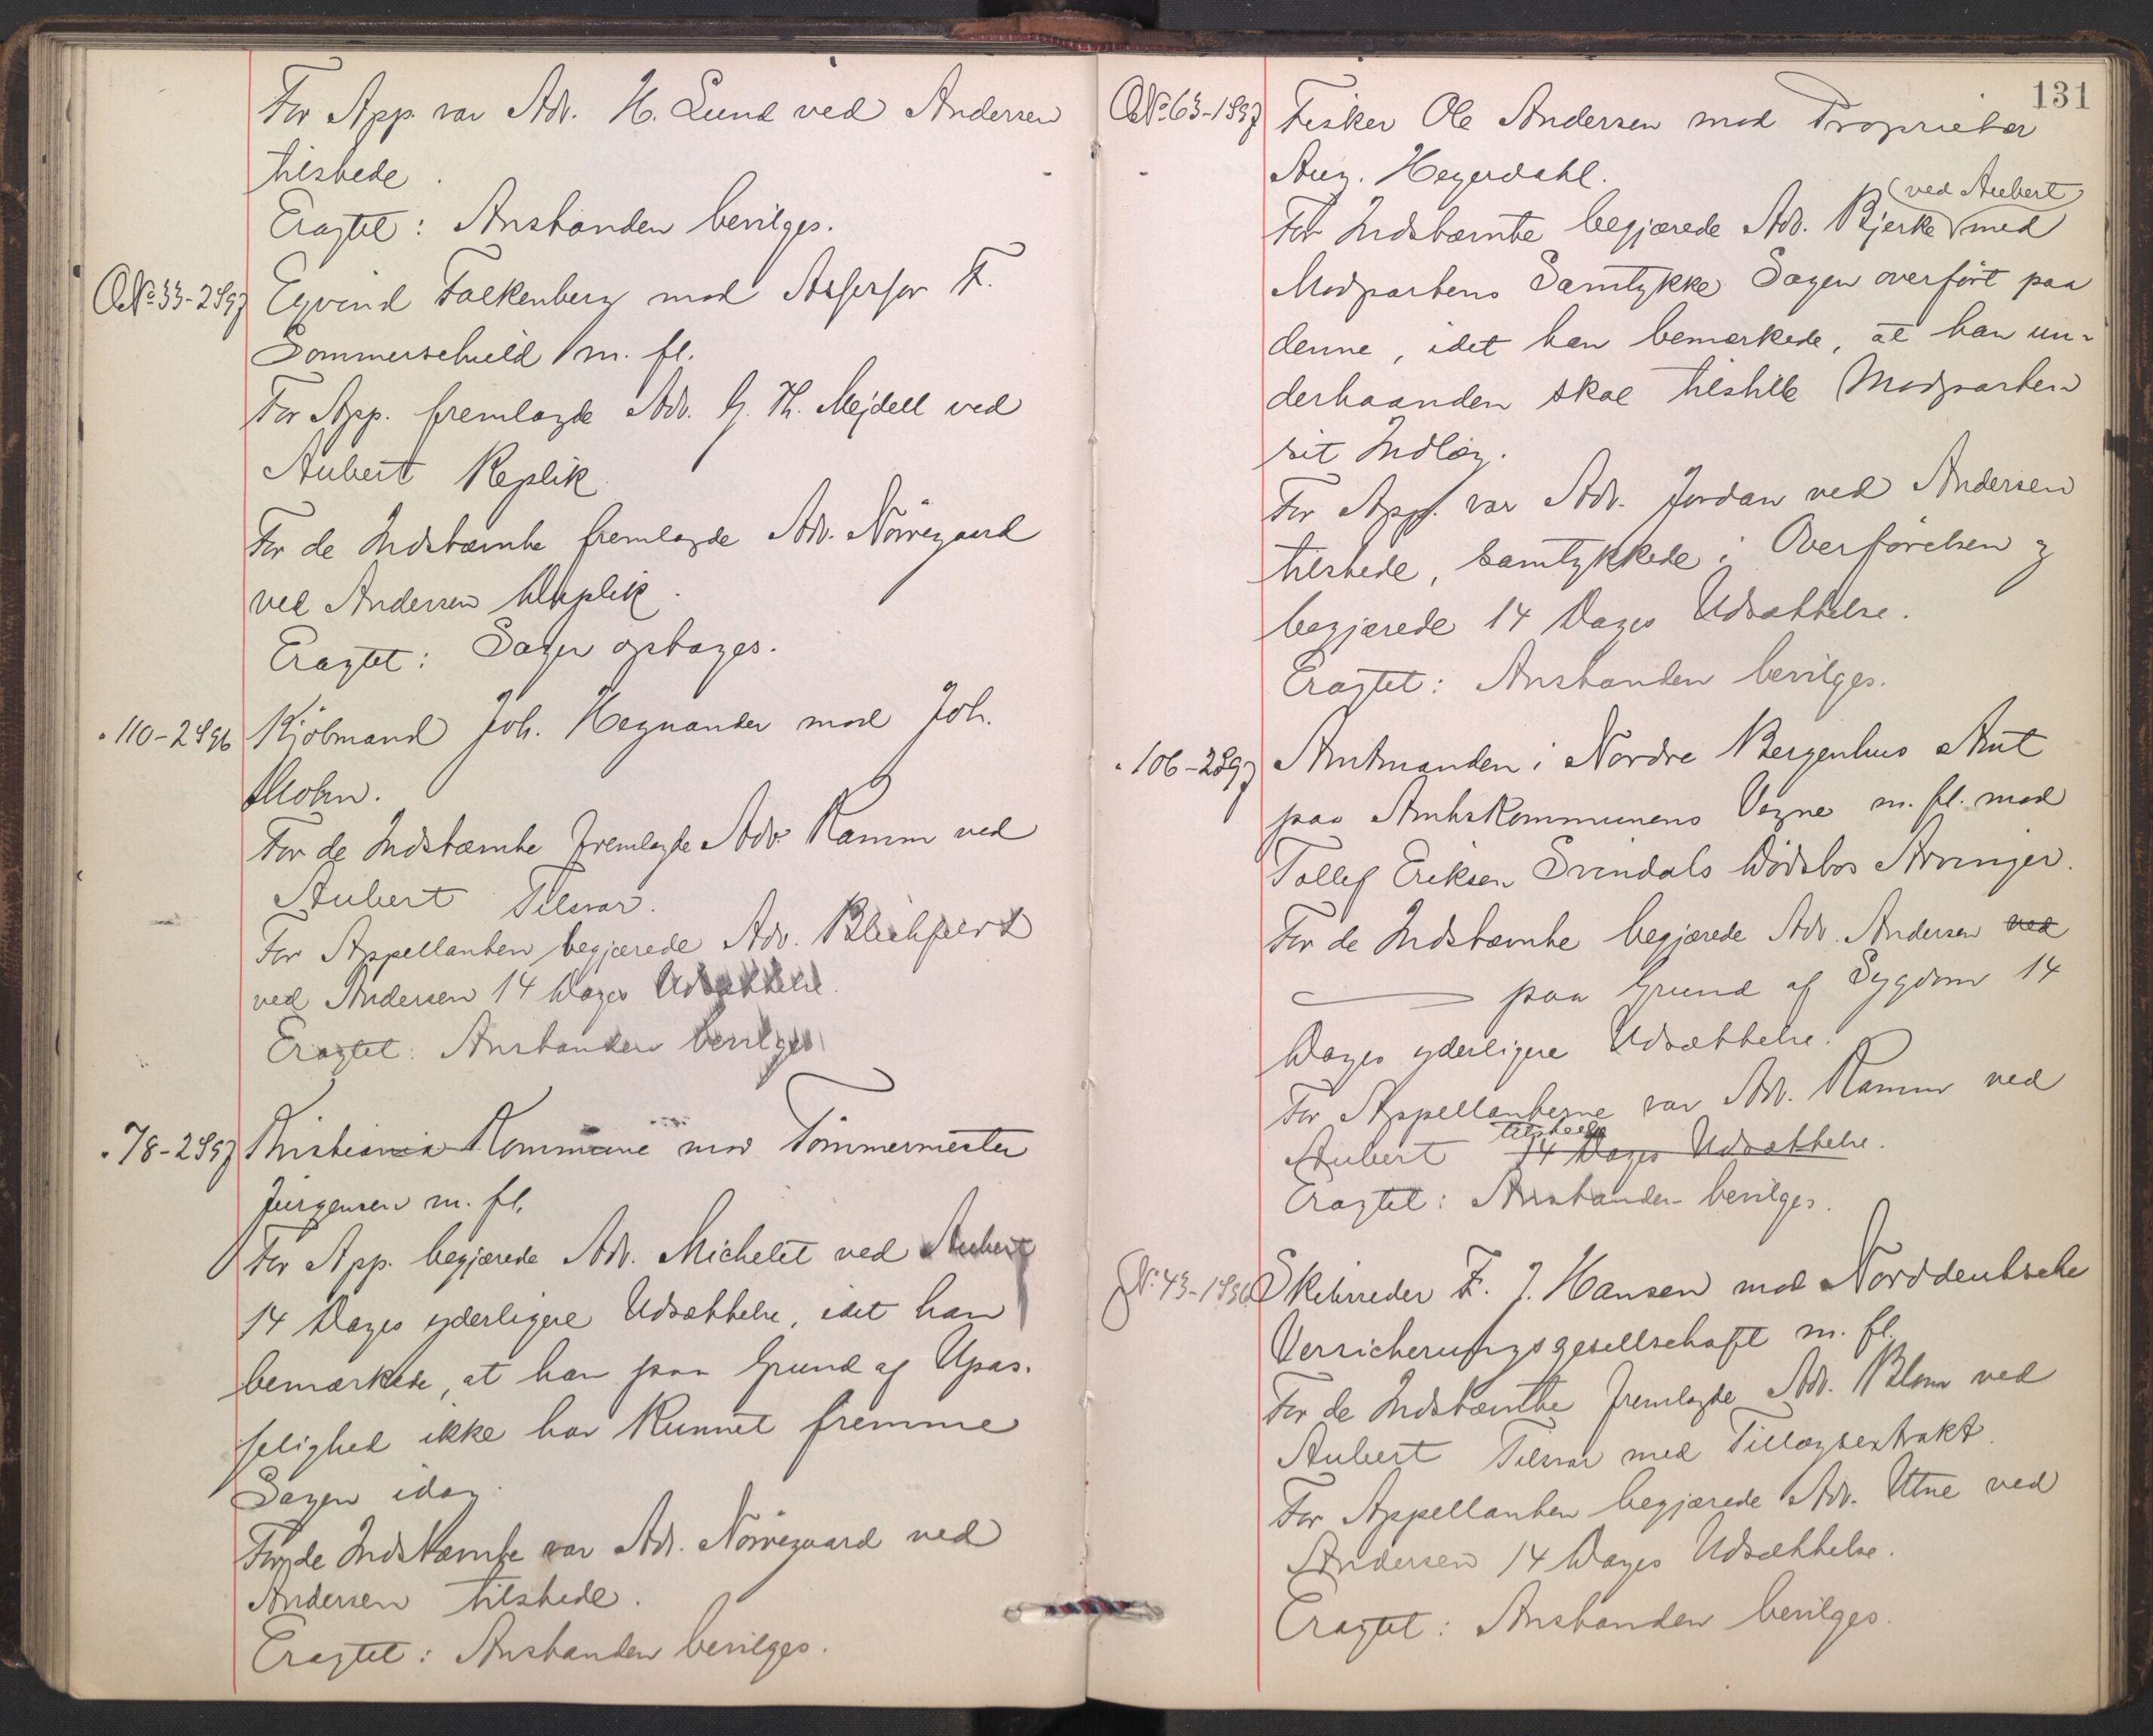 For App. var Adv. H. Lund ved Andersen
tilstede.
Eragtet: Anstanden bevilges.
No 33-2 97 Eyvind Falkenberg mod Assessor F.
Sommerschield m. fl.
For App. fremlagde Adv. G. Th. Mejdell ved
Aubert Replik.
For de Indstævnte fremlagde Adv. Nørregaard
ved Andersen Duplik.
Eragtet: Sagen optages.
" 110-2 96 Kjøbmand Joh. Hegnander mod Joh.
Mohn.
For de Indstævnte fremlagde Adv. Kamm ved
Aubert Tilsvar.
For Appellanten begjærede Adv.
ved Andersen 14 Dages Udsættelse.
Eragtet: Anstanden bevilges
" 78-2 97 Kristiania Kommune mod Tømmermester
Jürgensen m. fl.
For App. begjærede Adv. Michelet ved Aubert
14 Dages yderligere Udsættelse, idet han
bemærkede, at han paa Grund af Upas-
selighed ikke har kunnet fremme
Sagen idag.
For de Indstævnte var Adv. Nørregaard ved
Andersen tilstede.
Eragtet: Anstanden bevilges.
131
No 63-1 97 Fisker Ole Andersen mod Proprietær
Aug. Heyerdahl.
ved Aubert
For Indstævnte begjærede Adv. Bjerke med
Modpartens Samtykke Sagen overført paa
denne, idet han bemærkede, at han un-
derhaanden skal tilstille Modparten
sit Indlæg.
For App. var Adv. Jordan ved Andersen
tilstede, samtykkede i Overførelsen og
begjærede 14 Dages Udsættelse.
Eragtet: Anstanden bevilges.
" 106-2 97 Amtmanden i Nordre Bergenhus Amt
paa Amtskommunens Vegne m. fl. mod
Tollef Eriksen Svendals Dødsbos Arvinger.
For de Indstævnte begjærede Adv. Andersen ved
paa Grund af Sygdom 14
Dages yderligere Udsættelse.
For Appellanterne var Adv. Kamm ved
tilstede
Aubert 14 Dages Udsættelse.
Eragtet: Anstanden bevilges.
No 43-1 96 Skibsreder F. J. Hansen mod Norddeutsche
Versicherungsgesellschaft m. fl.
For de Indstævnte fremlagde Adv. Blom ved
Aubert Tilsvar med Tillægsextrakt.
For Appellanten begjærede Adv. Utne ved
Andersen 14 Dages Udsættelse.
Eragtet: Anstanden bevilges.